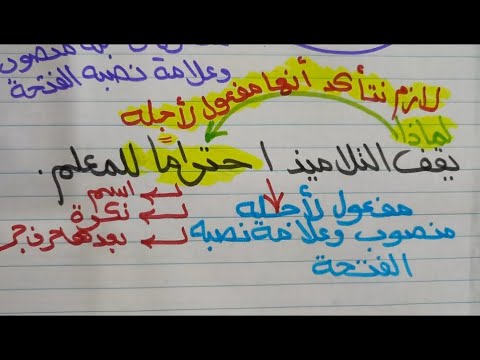 منصوب
وعلامة نصبه الفتحة
لازم نتأكد أنها مفعول لأجله
لماذا
يقف التلاميذ احتراماً للمعلم.
اسم
نكرة
بعدها حرف جر
مفعول لأجله
منصوب وعلامة نصبه
الفتحة